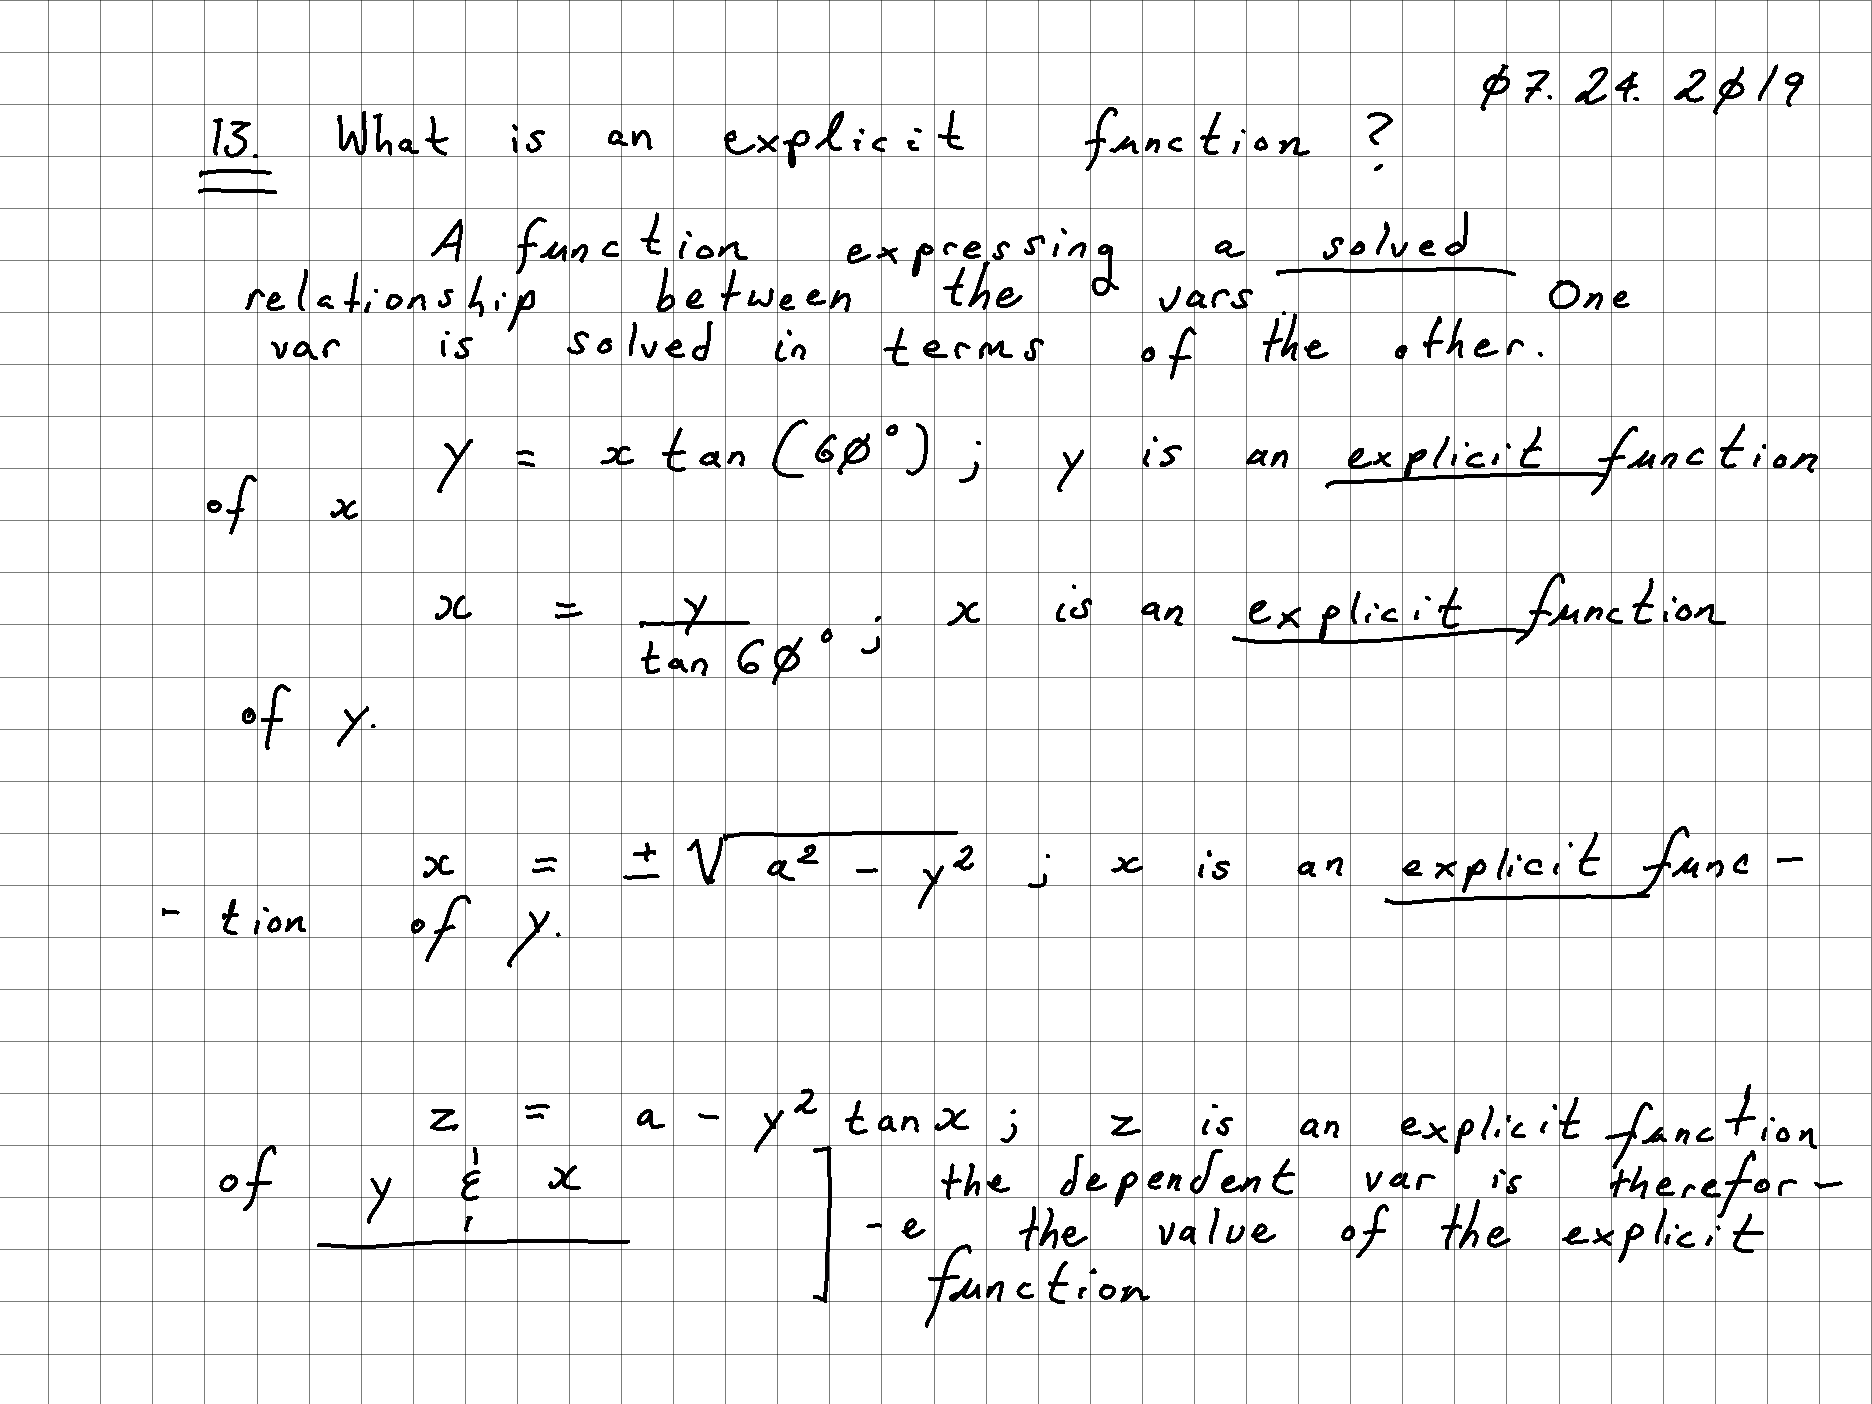 07. 24. 2019
13. What is an explicit function ?
A function expressing a solved
relationship between the vars. One
var is solved in terms of the other.
y = x tan (60°) ; y is an explicit function
of x
x = y / tan 60° ; x is an explicit function
of y.
x = ± √(a² - y²) ; x is an explicit func -
- tion of y.
z = a - y² tan x ; z is an explicit function
of y & x
the dependent var is therefor -
- e the value of the explicit
function